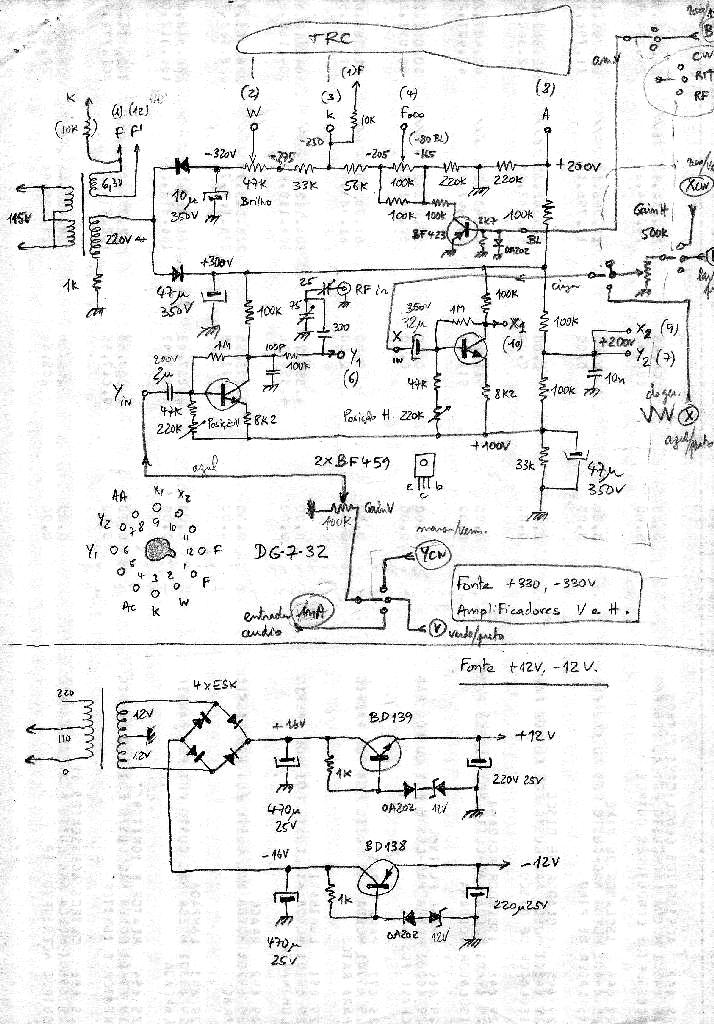 TRC
CW
RIT
RF
(2) (3) (4) (8)
(1)F
W K Foco A
10K
K
(10K)
(1) (12)
F F'
6,3V
-320V
-275
-250
-205
(-80 BL)
-165
+200V
47K
Brilho
33K
56K
100K
220K
220K
10µ
350V
100K
100K
BF423
2K7
OA202
100K
BL
XCW
Gain H
500K
220V
1K
+300V
47µ
350V
100K
25
RF in
75
330
1M
100P
100K
Y1
(6)
2µ
YIN
47K
220K
Posição V
8K2
350V
X
IN
1M
100K
X1
(10)
47K
Posição H.
220K
8K2
100K
100K
X2 (9)
+200V
Y2 (7)
10n
X
+100V
33K
47µ
350V
azul
2XBF459
e c b
Gain V
100K
AA X1 X2
Y2 7 8 9 10 11
Y1 6 12 F
5 4 3 2 1 F
AC K W
DG-7-32
YCW
Fonte +330, -330V
Amplificadores V e H.
entrada
audio
V
verde/preto
Fonte +12V, -12V.
220
110
0
12V
12V
4xESK
+16V
BD139
+12V
1K
OA202
12V
470µ
25V
220V 25V
-16V
BD138
-12V
1K
OA202
12V
470µ
25V
220µ25V